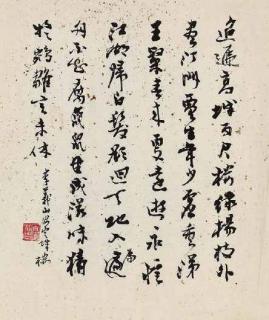 迢遞高城百尺樓綠楊枝外
盡汀洲賈生年少虛垂涕
王粲春來更遠遊永憶
江湖歸白髮欲回天地入扁
舟不知腐鼠成滋味猜
意鵷雛竟未休
李義山安定城樓